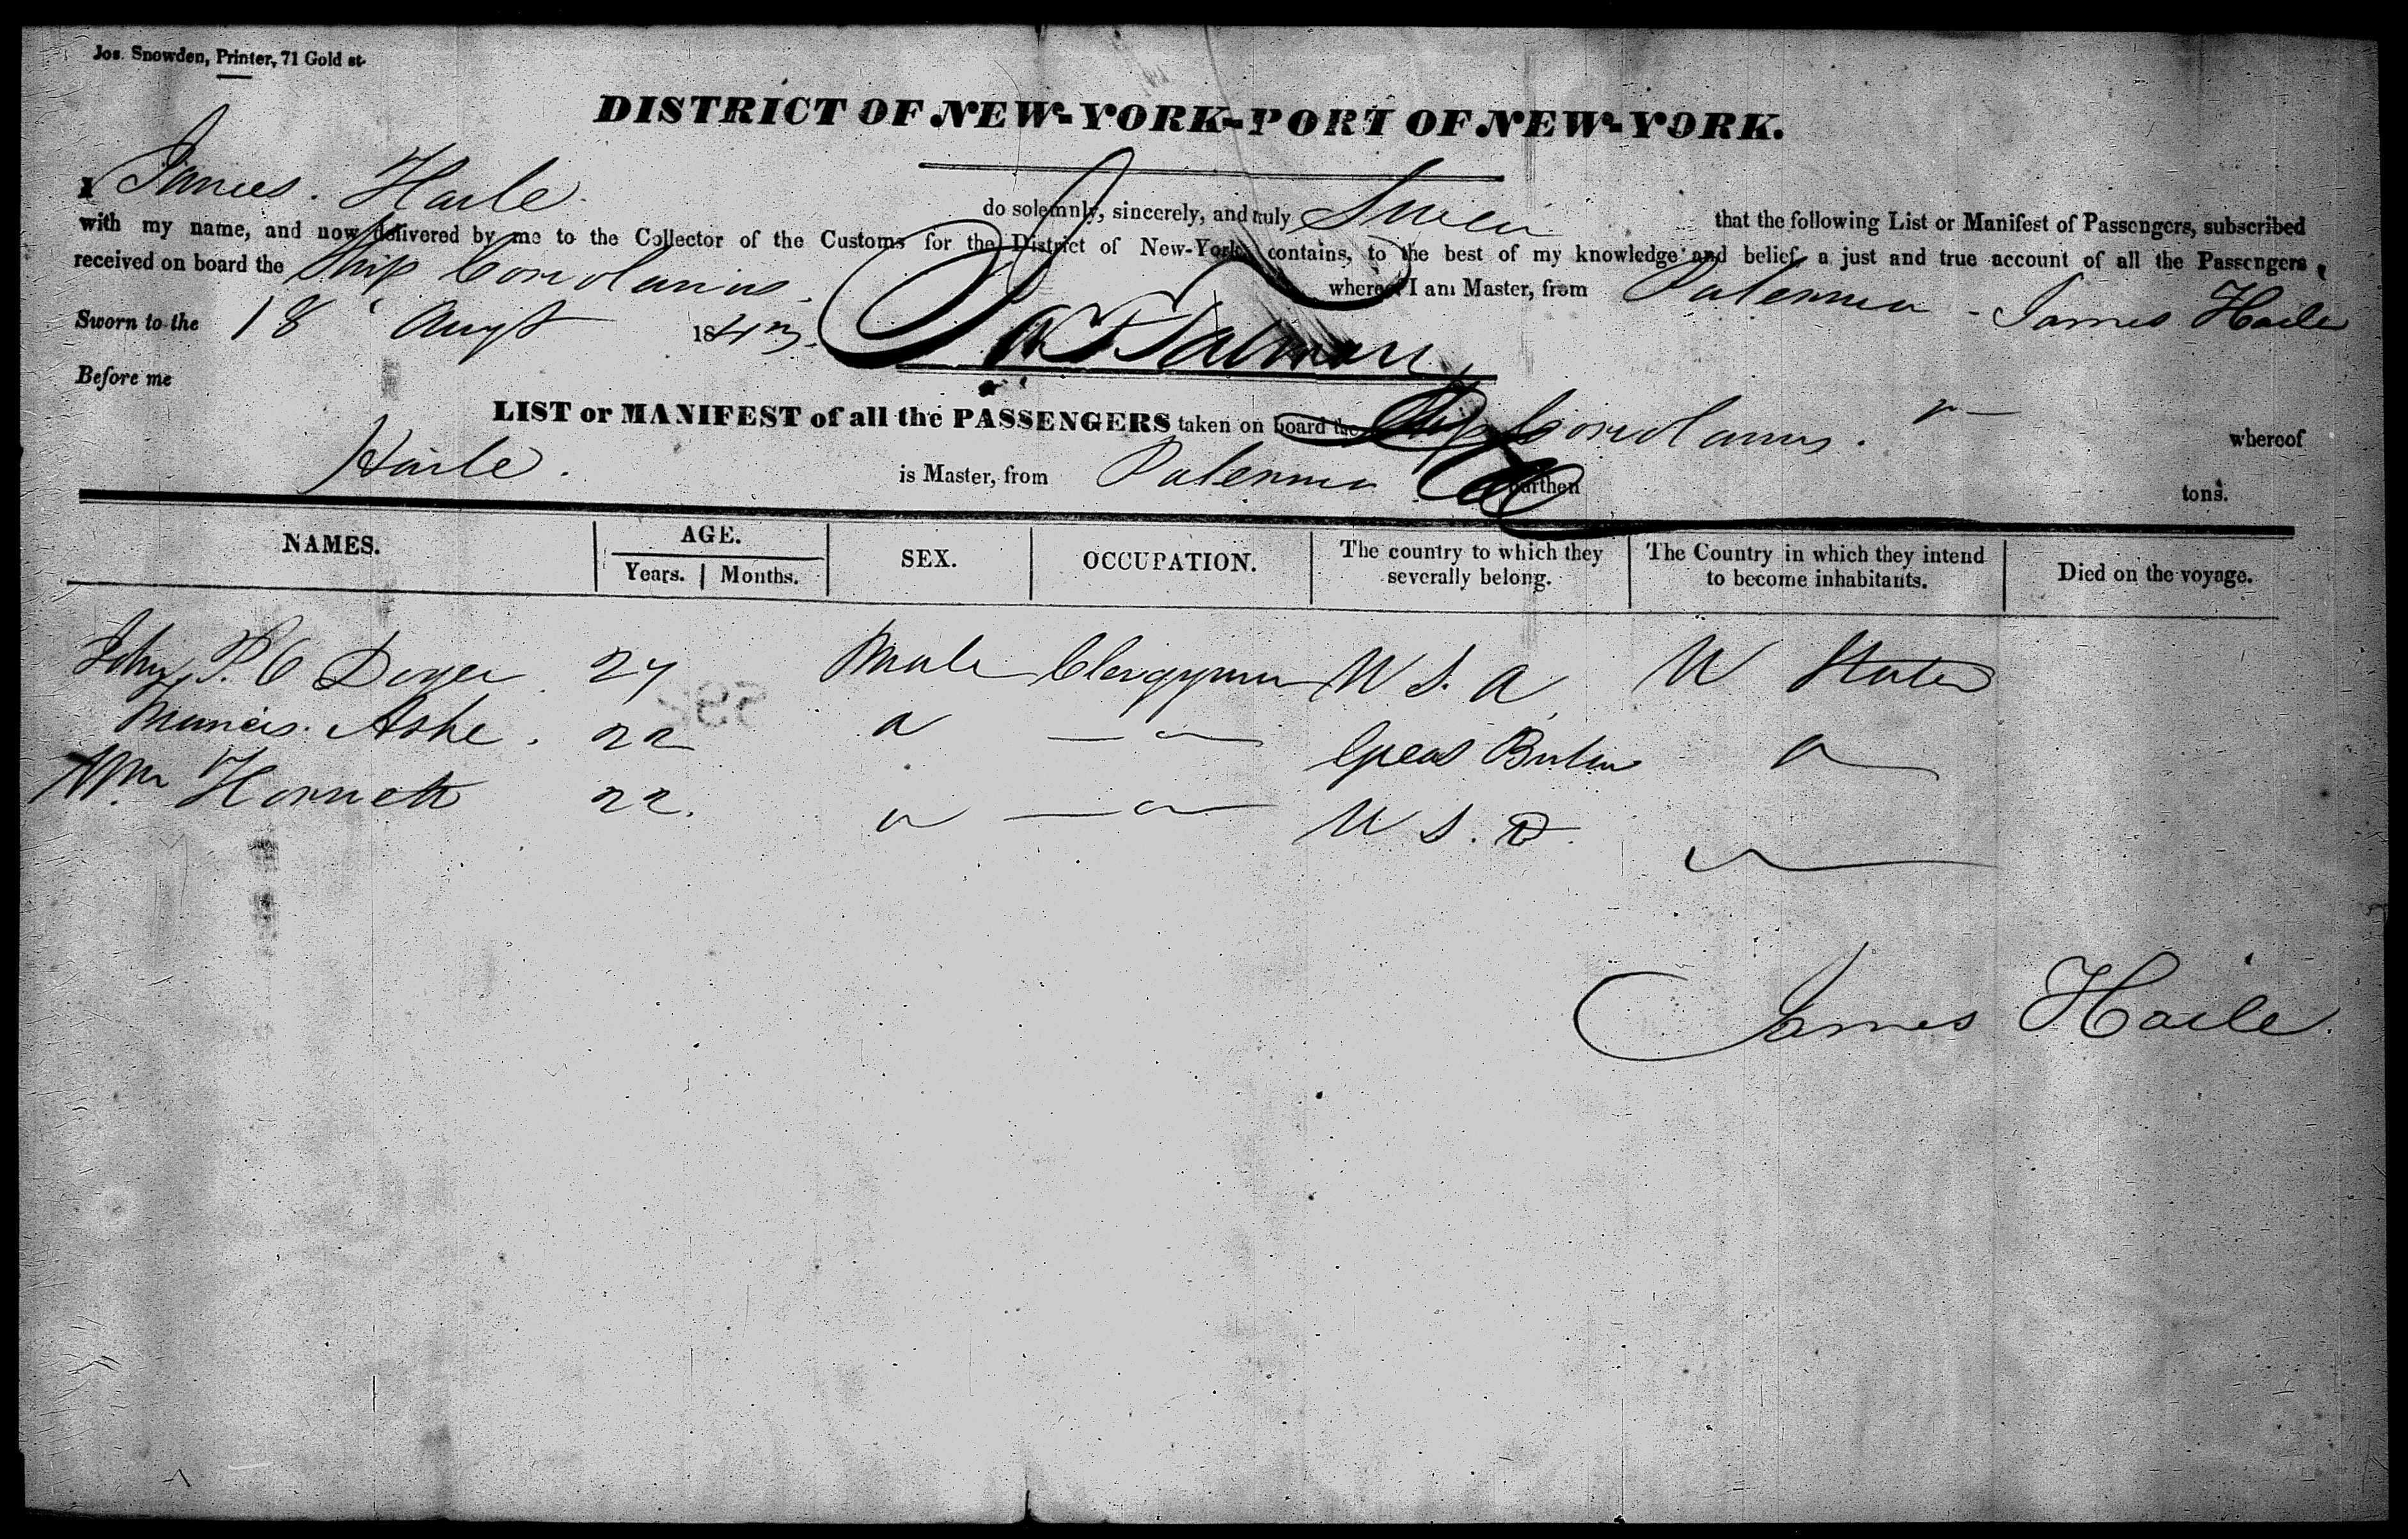 Jos. Snowden, Printer, 71 Gold st.
DISTRICT OF NEW-YORK-PORT OF NEW-YORK.
I James. Haile. do solemnly, sincerely, and truly Swear that the following List or Manifest of Passengers, subscribed
with my name, and now delivered by me to the Collector of the Customs for the District of New-York, contains, to the best of my knowledge and belief, a just and true account of all the Passengers
received on board the Ship Coriolanus whereof I am Master, from Palermo - James Haile
Sworn to the 18 Augt 1843.
Before me
LIST or MANIFEST of all the PASSENGERS taken on board the Ship Coriolanus. whereof
Haile. is Master, from Palermo burthen tons.
NAMES. AGE. SEX. OCCUPATION. The country to which they severally belong. The Country in which they intend to become inhabitants. Died on the voyage.
Years. Months.
John, P. C 27 Male Clergyman U S. A U States
Ashe. 22 Great Britain
Wm Hornett 22. U S. A.
James Haile.